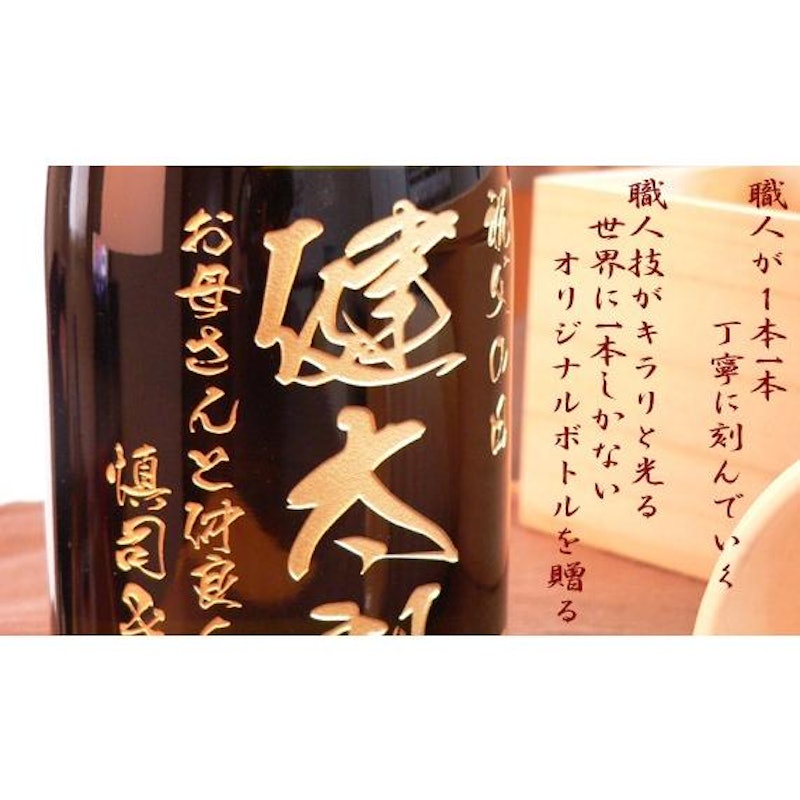 職人が1本一本
丁寧に刻んでいく
職人技がキラリと光る
世界に一本しかない
オリジナルボトルを贈る
祝父の日
健太
お母さんと仲良く
慎司